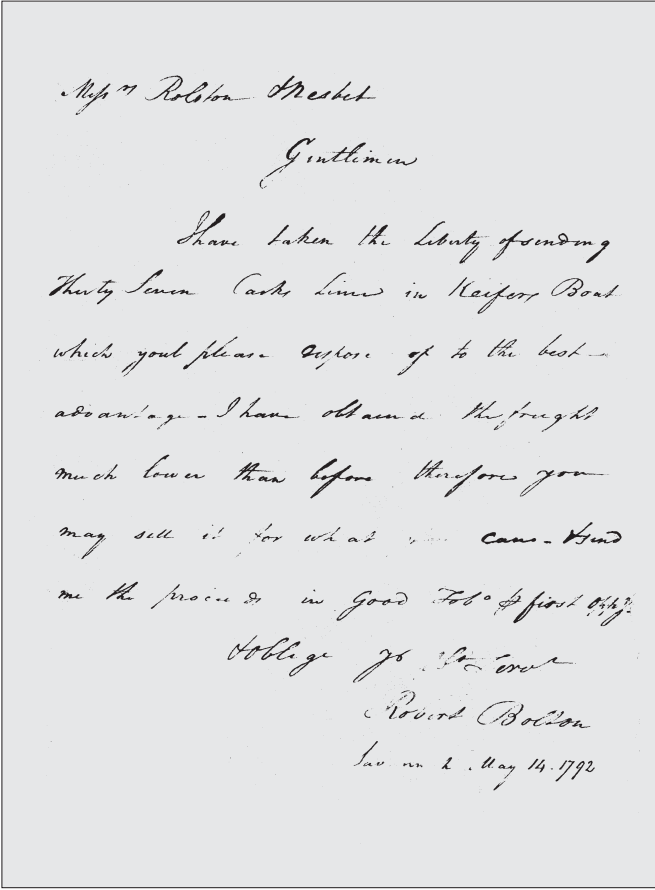 Messrs Rolston & Nesbit
Gentlimen
I have taken the Liberty of sending
Thirty Seven Casks Lime in Keifers Boat
which youl please dispose of to the best
advantage - I have obtaind the freight
much lower than before therefore you
may sell it for what you can - & send
me the proceeds in Good Tobo P first oppy.
& oblige yr Servt
Robert Bolton
May 14. 1792